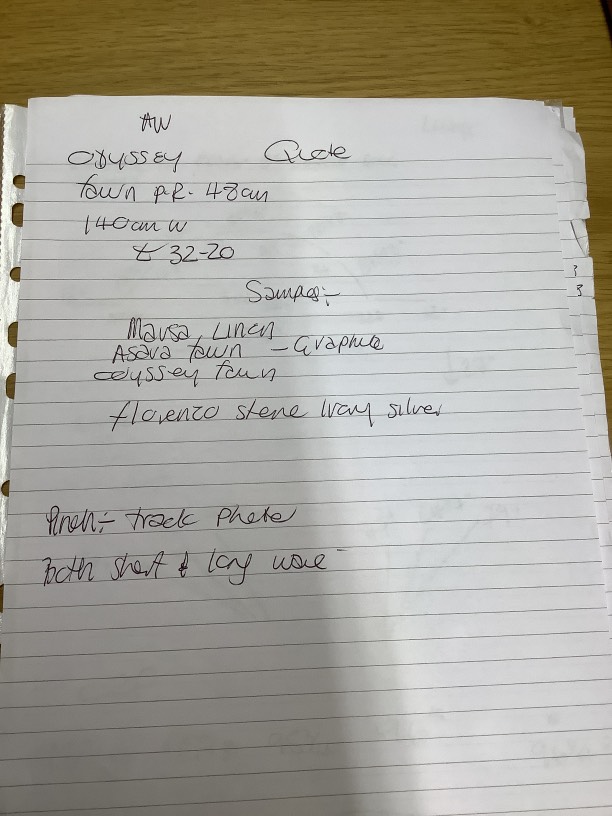 AW
Odyssey Quote
Fawn P.R. 48cm
140cm W
£ 32-20
Samples:-
Linen
Asava Fawn - Graphite
Odyssey Fawn
florenzo stone Ivory silver
Pinch:- track Photo
Both short & long
3
3